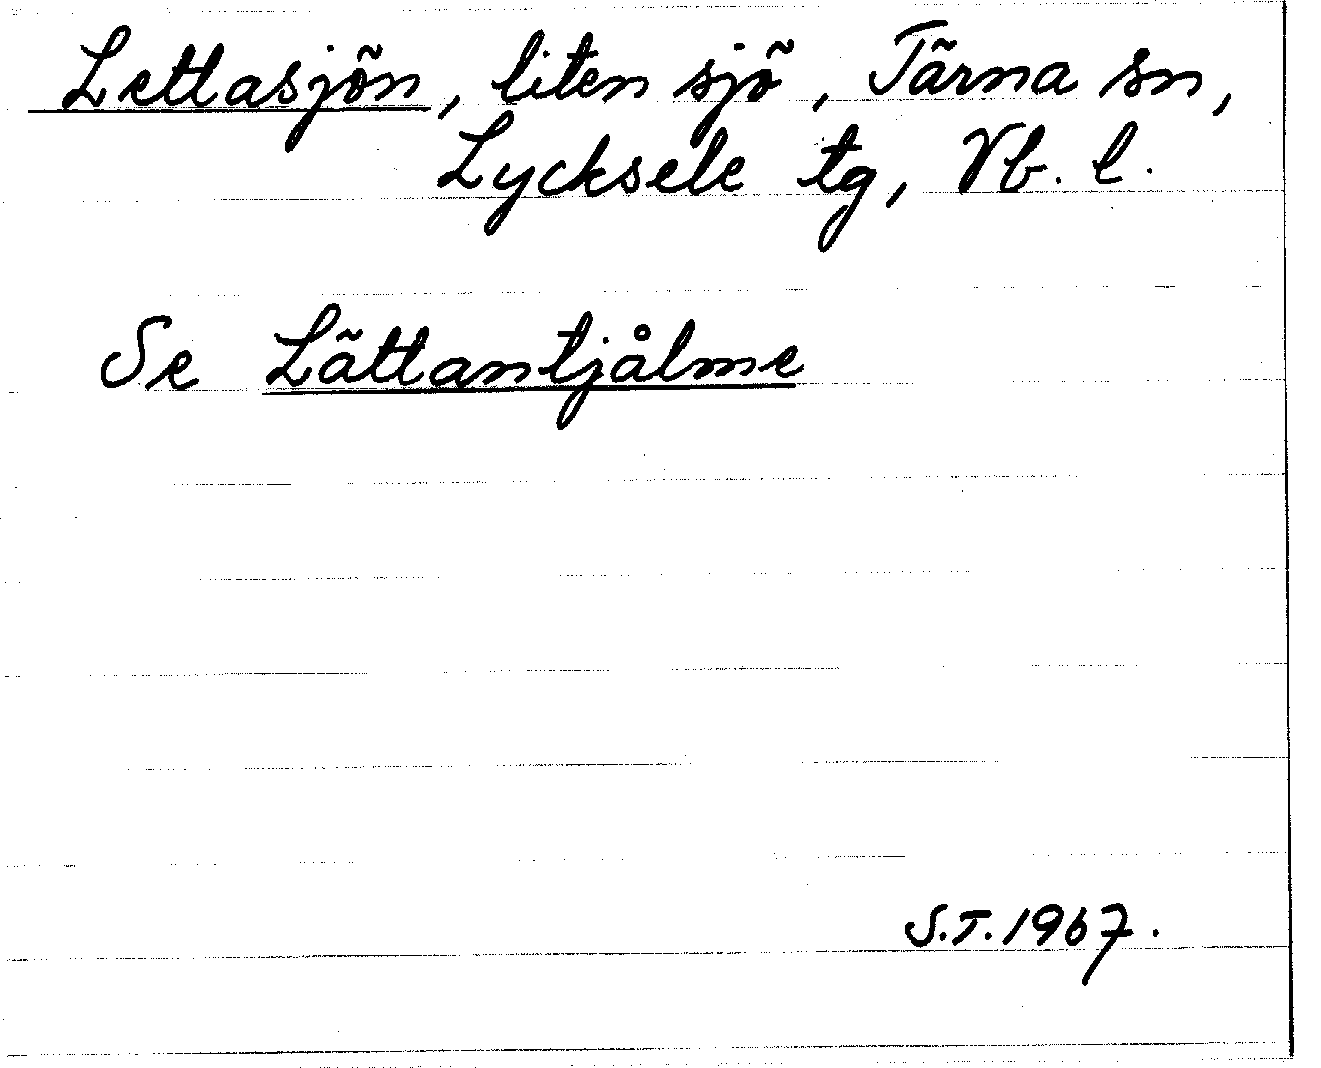 Lettasjön, liten sjö, Tärna sn,
Lycksele tg, Vb. l.
Se Lättantjålme
S.T. 1967.